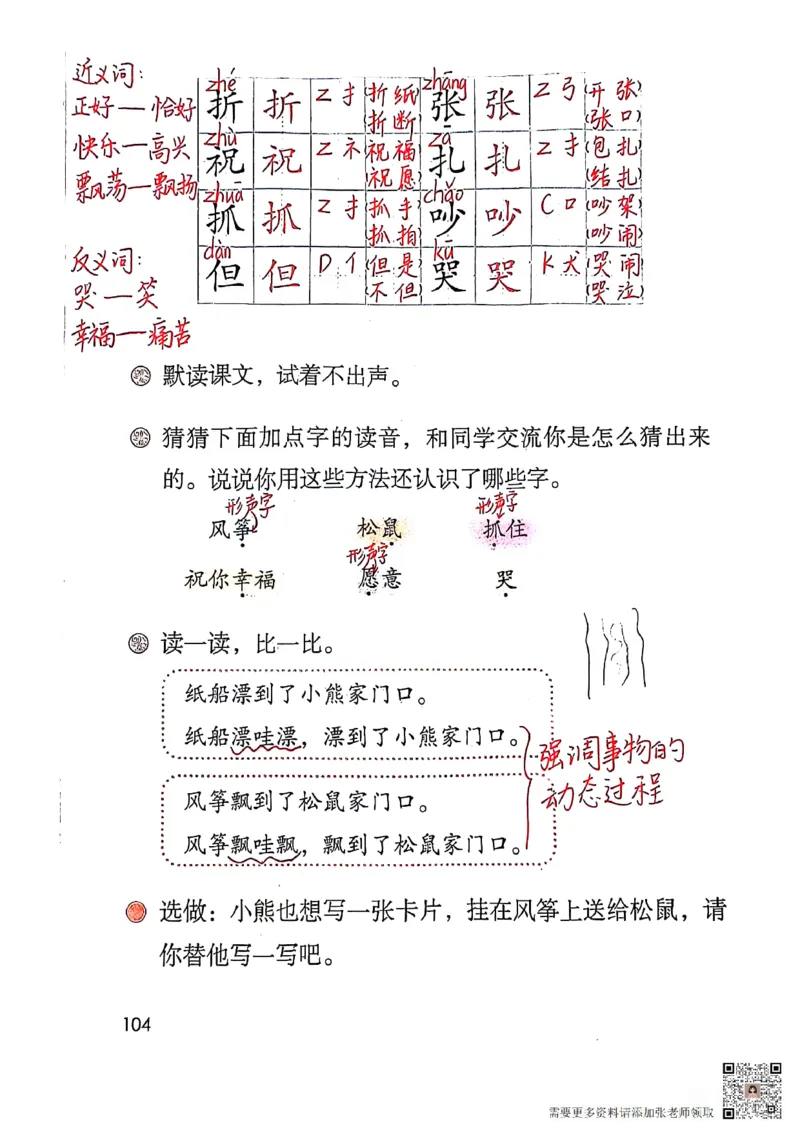 近义词：
正好—恰好
快乐—高兴
飘荡—飘扬
反义词：
哭—笑
幸福—痛苦
zhé zhāng
折 折 Z扌 (折纸) (折断) 张 张 Z弓 (开张) (张口)
zhù zā
祝 祝 Z礻 (祝福) (祝愿) 扎 扎 Z扌 (包扎) (结扎)
zhuā chǎo
抓 抓 Z扌 (抓手) (抓拍) 吵 吵 C口 (吵架) (吵闹)
dàn kū
但 但 D亻 (但是) (不但) 哭 哭 K犬 (哭闹) (哭泣)
默读课文，试着不出声。
猜猜下面加点字的读音，和同学交流你是怎么猜出来
的。说说你用这些方法还认识了哪些字。
形声字 形声字
风筝 松鼠 抓住
形声字
祝你幸福 愿意 哭
读一读，比一比。
纸船漂到了小熊家门口。
纸船漂哇漂，漂到了小熊家门口。
强调事物的
动态过程
风筝飘到了松鼠家门口。
风筝飘哇飘，飘到了松鼠家门口。
选做：小熊也想写一张卡片，挂在风筝上送给松鼠，请
你替他写一写吧。
104
需要更多资料请添加张老师领取